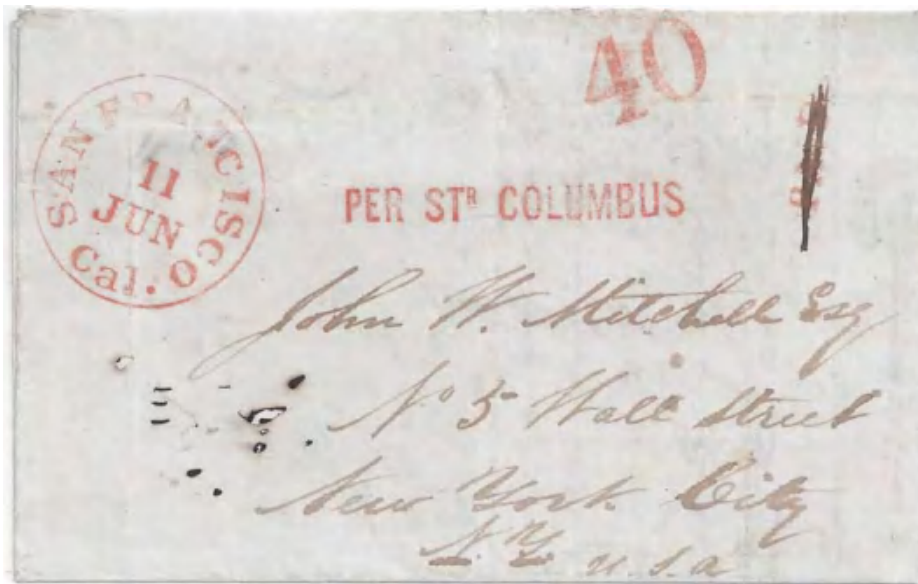 40
SAN FRANCISCO
11
JUN
Cal.
PER STR COLUMBUS
John W. Mitchell Esq
No 5 Wall Street
New York City
N.Y. U.S.A